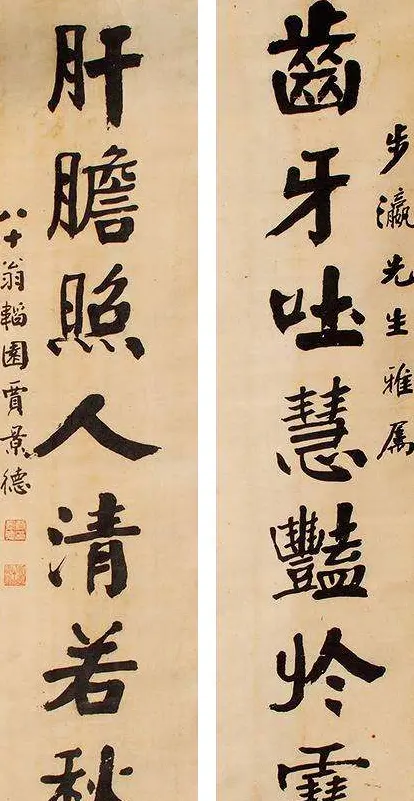 步瀛先生雅属
齒牙吐慧豔扵雪
肝膽照人清若秋
八十翁韜園賈景德